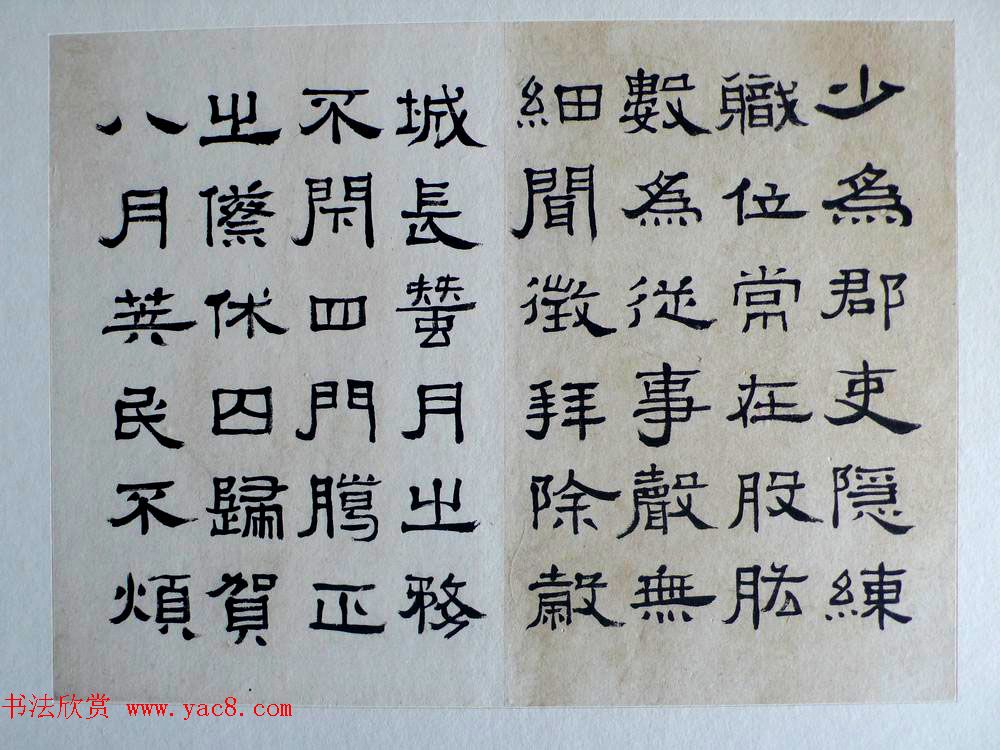 少為郡吏隱練
職位常在股肱
數為從事聲無
細聞徵拜除穀
城長蠶月之務
不閉四門臘正
之傺休囚歸賀
八月筭民不煩
书法欣赏 www.yac8.com